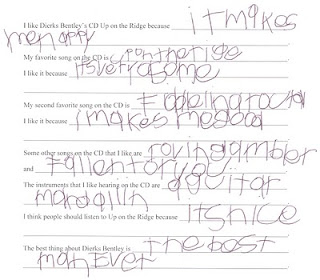 I like Dierks Bentley's CD Up on the Ridge because itmakes
mehappy
My favorite song on the CD is upontherige
I like it because itsveryasome
My second favorite song on the CD is
I like it because imakesmegood
Some other songs on the CD that I like are rovingambler
and Fallentoryou
The instruments that I like hearing on the CD are aguitar
mandolin
I think people should listen to Up on the Ridge because itsnice
The best thing about Dierks Bentley is thebest
manEver